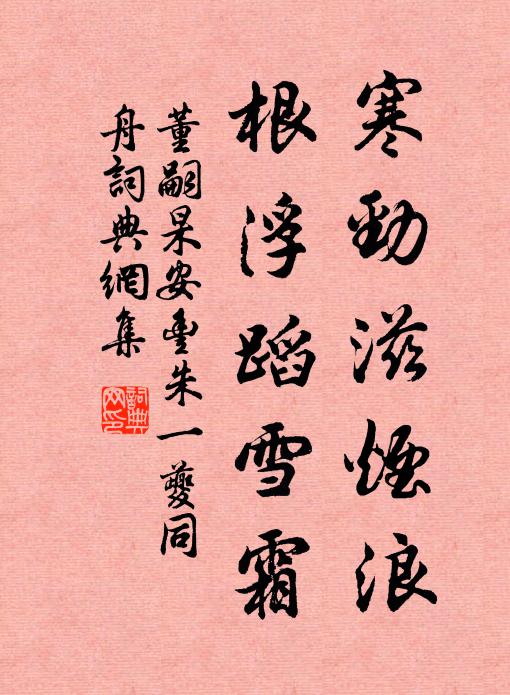 寒勁滋煙浪
根浮蹈雪霜
董嗣杲安豐朱一夔同
舟詞典網集
詞典網印